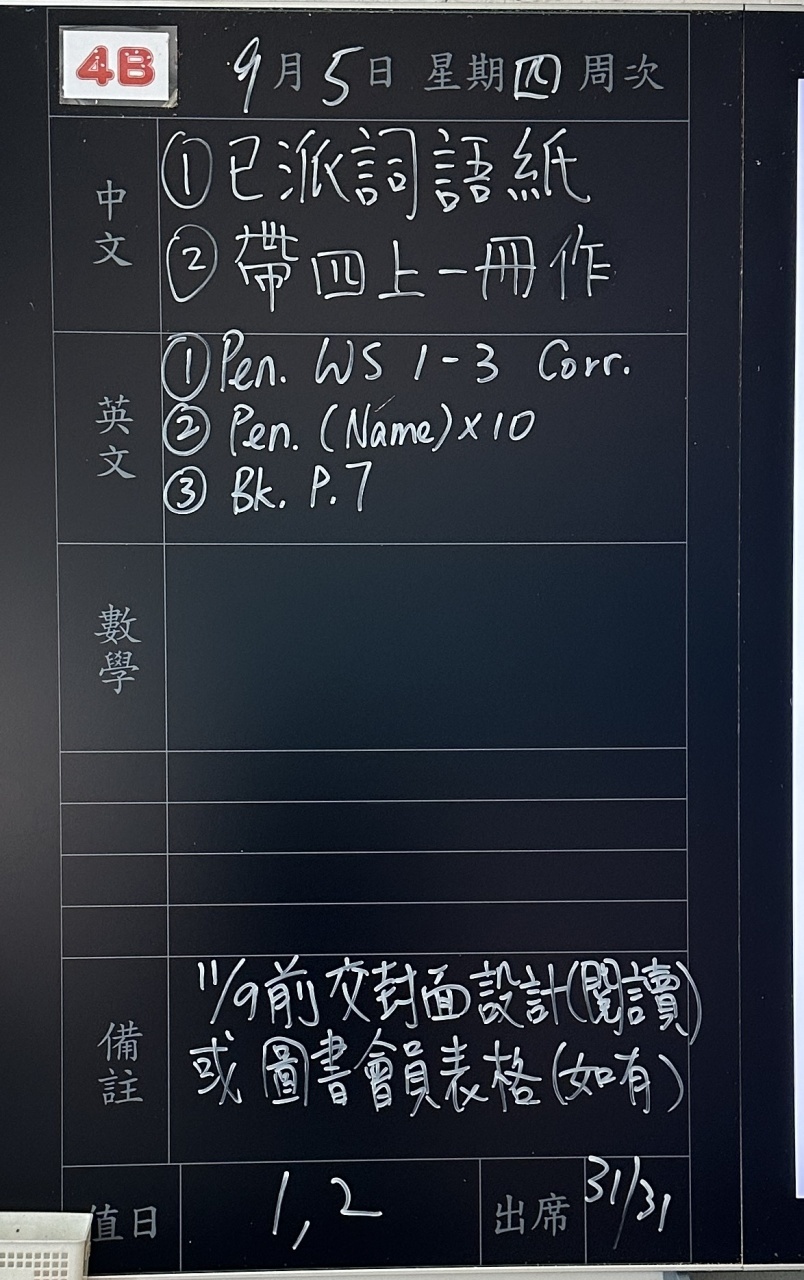 4B
9月5日 星期四 周次
中文
①已派詞語紙
②帶四上一冊作
英文
①Pen. WS 1-3 Corr.
②Pen. (Name)×10
③Bk. P.7
數學
備註
11/9前交封面設計(閱讀)
或圖書會員表格(如有)
值日 1,2 出席 31/31